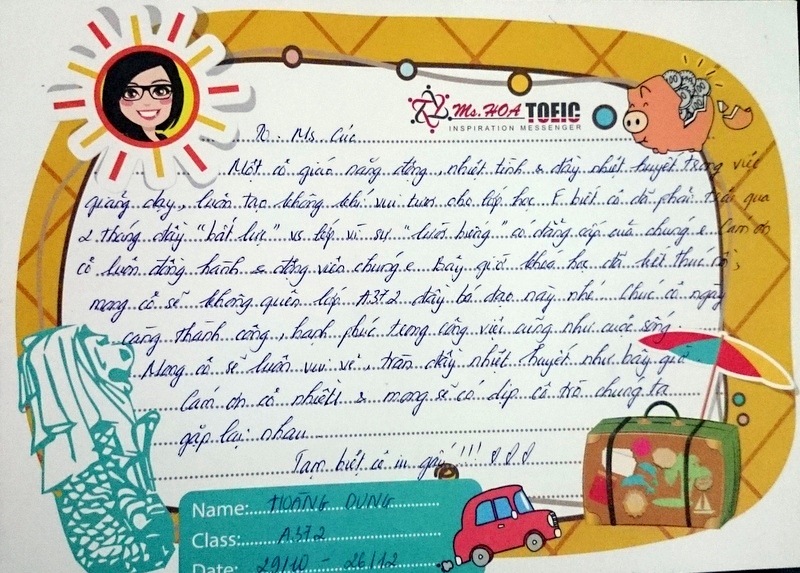 Ms. HOA TOEIC
INSPIRATION MESSENGER
To: Ms. Cúc
Một cô giáo năng động, nhiệt tình & đầy nhiệt huyết trong việc
giảng dạy, luôn tạo không khí vui tươi cho lớp học. E biết cô đã phải trải qua
2 tháng đầy "bất lực" vs lớp vì sự "lười biếng" có đẳng cấp của chúng e. Cảm ơn
cô luôn đồng hành & động viên chúng e. Bây giờ khóa học đã kết thúc rồi,
mong cô sẽ không quên lớp A372 đầy bá đạo này nhé. Chúc cô ngày
càng thành công, hạnh phúc trong công việc cũng như cuộc sống.
Mong cô sẽ luôn vui vẻ, tràn đầy nhiệt huyết như bây giờ
Cảm ơn cô nhiều & mong sẽ có dịp cô trò chúng ta
gặp lại nhau
Tạm biệt cô !!!
Name: HOÀNG DUNG
Class: A372
Date: 29/10 - 26/12